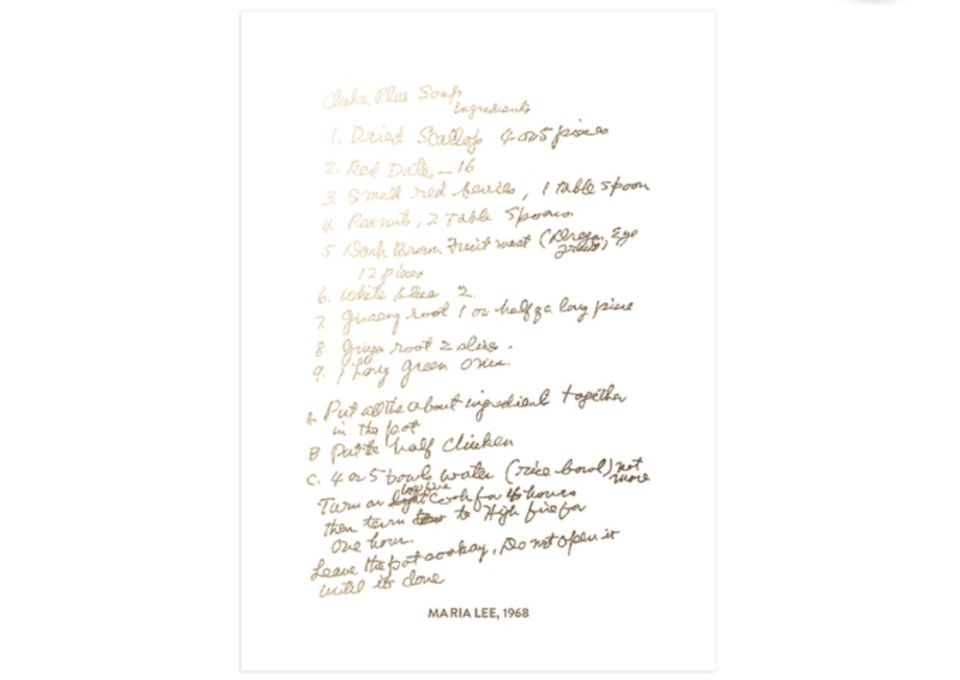 Chicken Plus Soup
Ingredients
1. Dried Scallop 4 or 5 pieces
2. Red Date – 16
3 Small red berries, 1 table spoon
4. Peanuts, 2 Table Spoons
5 Dark Brown Fruit meat (Dragon Eye
12 pieces
6. White 2.
7 Ginseng root 1 or half of a long piece
8. root 2 slice.
9. 1 Long green Onion
A Put all the about ingredient together
in the pot
B Put the half Chicken
C. 4 or 5 bowls water (rice bowl) not
more
low fire
Turn on light Cook for hours
then turn to High fire for
One hour.
Leave the pot, Do not open it
until its done
MARIA LEE, 1968